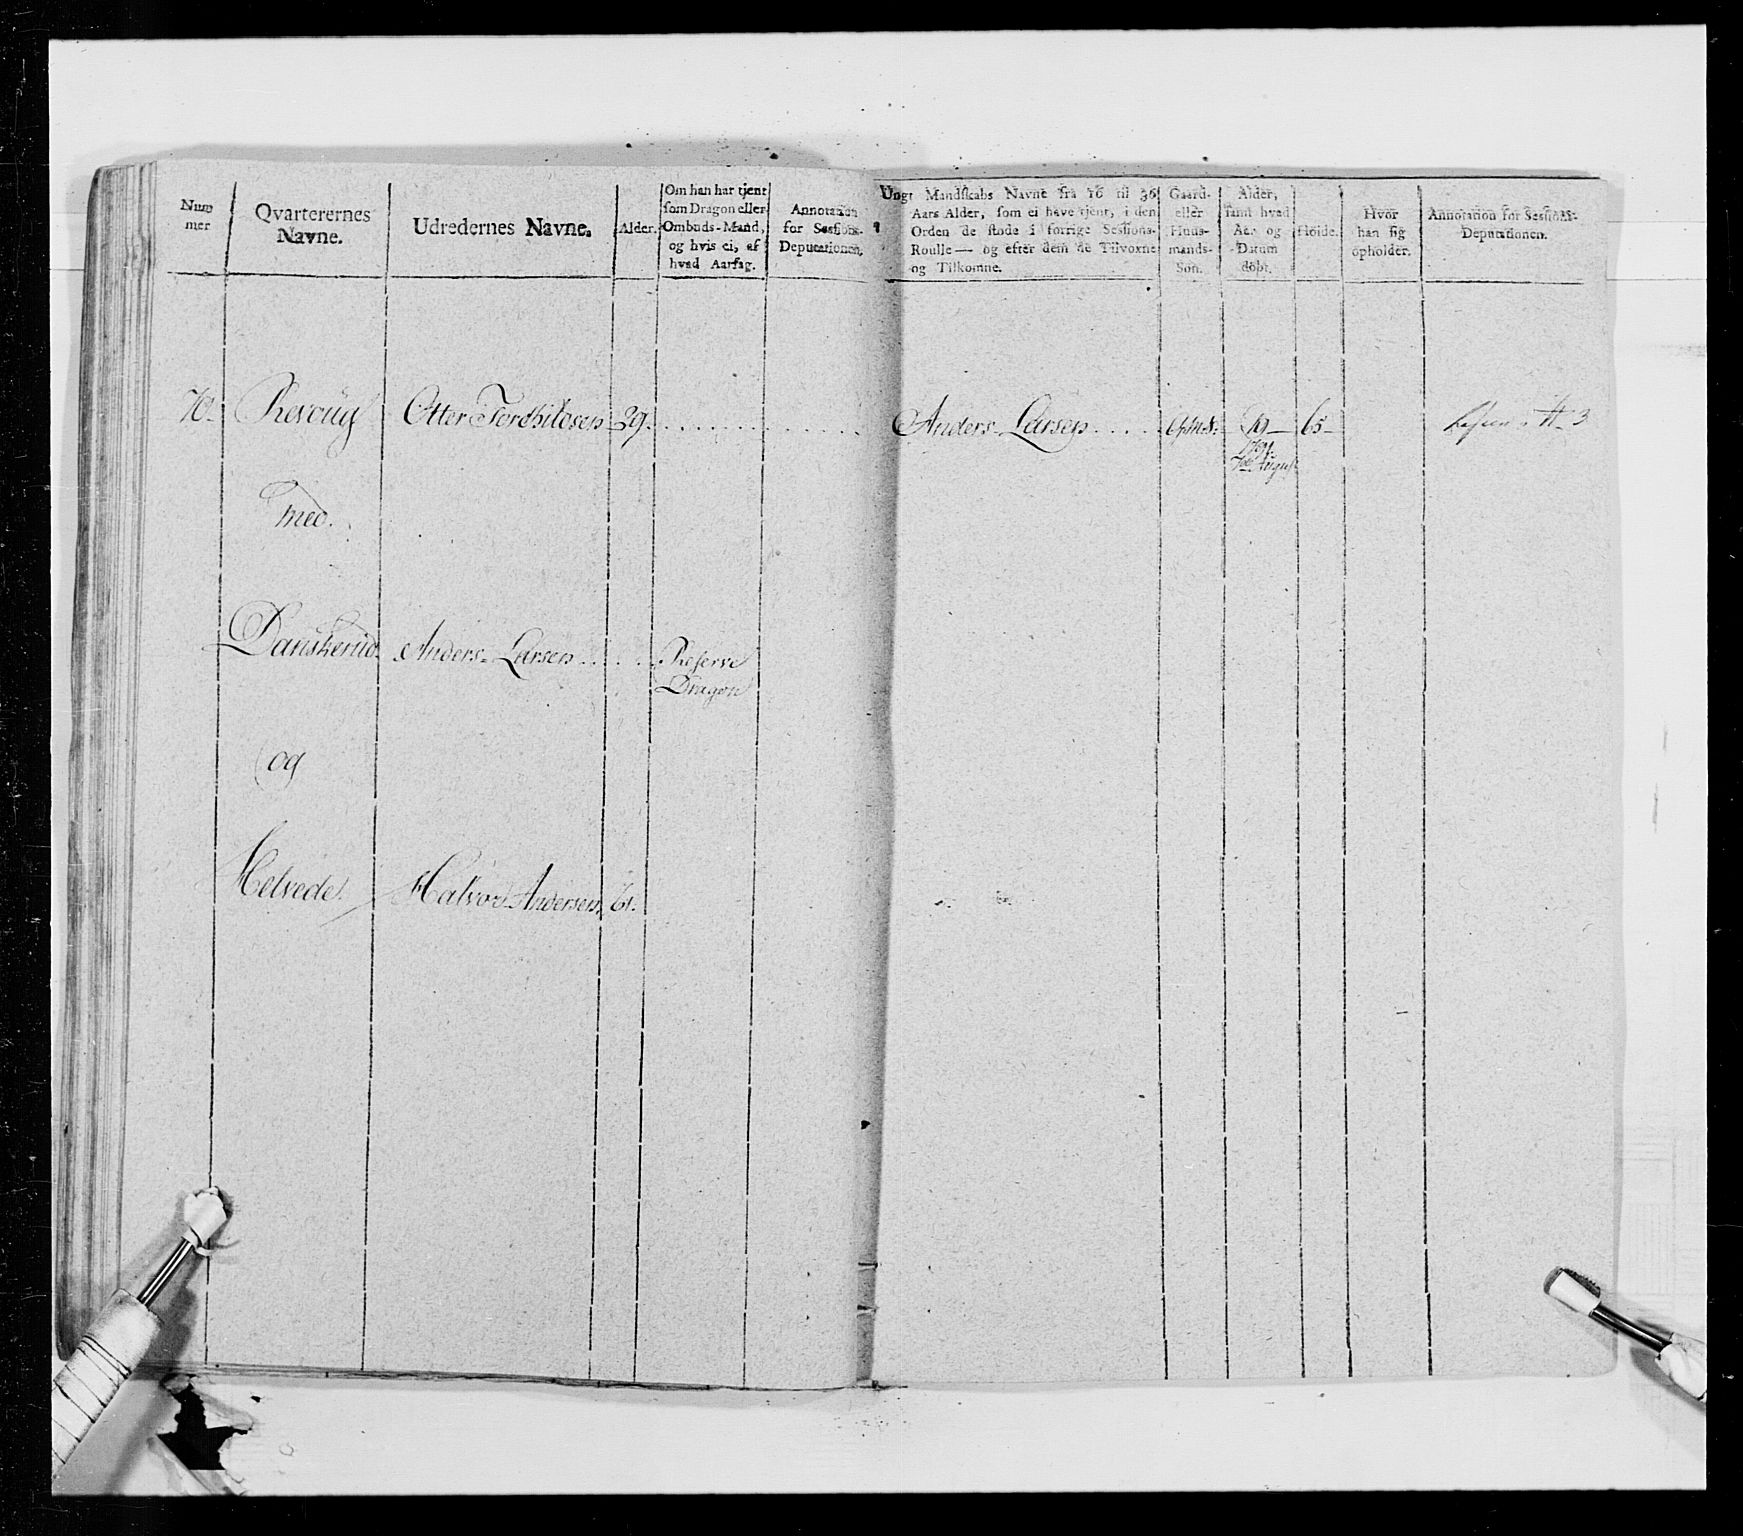 Num
mer
Qvarterernes
Navne.
Udredernes Navne.
Alder.
Om han har tjent
som Dragon eller
Ombuds-Mand,
og hvis ei, af
hvad Aarsag.
Annotation
for Sessions-
Deputationen.
Ungt Mandskabs Navne fra 16 til 36
Aars Alder, som ei have tjent, i den
Orden de stode i forrige Sessions-
Roulle — og efter dem de Tilvoxne
og Tilkomne.
Gaard-
eller
Huus-
mands-
Søn.
Alder,
samt hvad
Aar og
Datum
døbt.
Høide.
Hvor
han sig
opholder.
Annotation for Sessions-
Deputationen.
70. Revoug Otter Torchildsen 39. Anders Larsen G.m.S. 19 65
August
med.
Danskerud. Anders Larsen Reserve
Dragon
og
Helvede. Halvor Andersen. 61.